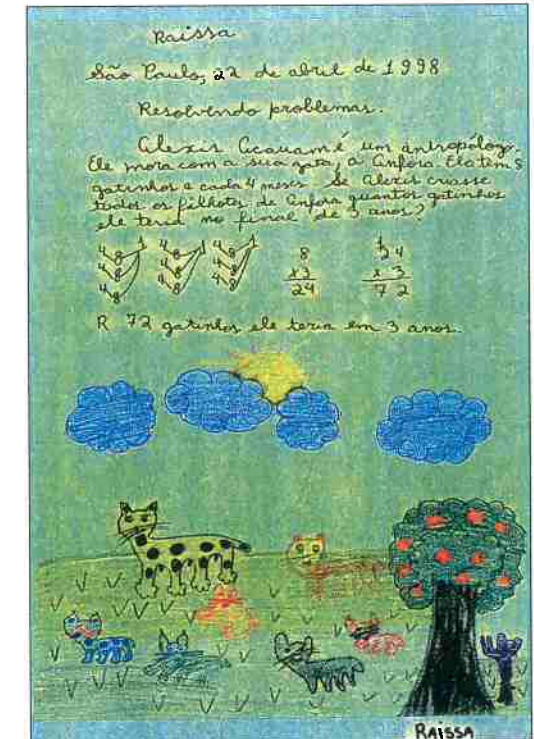 Raissa
São Paulo, 22 de abril de 1998
Resolvendo problemas.
Alexis Acauam é um antropólogo.
Ele mora com a sua gata, a Ânfora. Ela tem 8
gatinhos a cada 4 meses. Se Alexis criasse
todos os filhotes de Ânfora quantos gatinhos
ele teria no final de 3 anos?
4 8 1 4 8 1 4 8 1
4 8 4 8 4 8
4 8 4 8 4 8
8 1
x3 24
24 x 3
72
R 72 gatinhos ele teria em 3 anos.
RAISSA